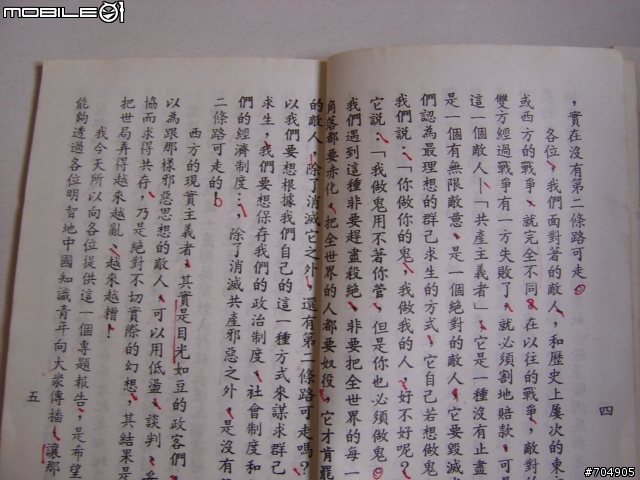 MOBILE01
，實在沒有第二條路可走。
各位，我們面對著的敵人，和歷史上屢次的東
或西方的戰爭，就完全不同。在以往的戰爭，敵對
雙方經過戰爭有一方失敗了，就必須割地賠款，可是
這一個敵人—「共產主義者」，它是一種沒有止盡
是一個有無限敵意、是一個絕對的敵人，它要毀滅
們認為最理想的群己求生的方式，它自己若想做鬼
我們說：「你做你的鬼，我做我的人，好不好呢？
它說：「我做鬼用不著你管，但是你也必須做鬼。
我們遇到這種非要趕盡殺絕、非要把全世界的每一
角落都要赤化、把全世界的人都要奴役，它才肯罷
四
的敵人，除了消滅它之外，還有第二條路可走嗎？
以我們要想根據我們自己的這一種方式來謀求群己
求生，我們要想保存我們的政治制度、社會制度和
們的經濟制度…，除了消滅共產邪惡之外，是沒有
二條路可走的。
西方的現實主義者，其實是目光如豆的政客們，
以為跟那樣邪惡思想的敵人，可以用低盪、談判、妥
協而求得共存，乃是絕對不切實際的幻想，其結果是
把世局弄得越來越亂、越來越糟！
我今天所以向各位提供這一個專題報告，是希望
能夠透過各位明智地中國知識青年向大衆傳播，讓那
五
#704905